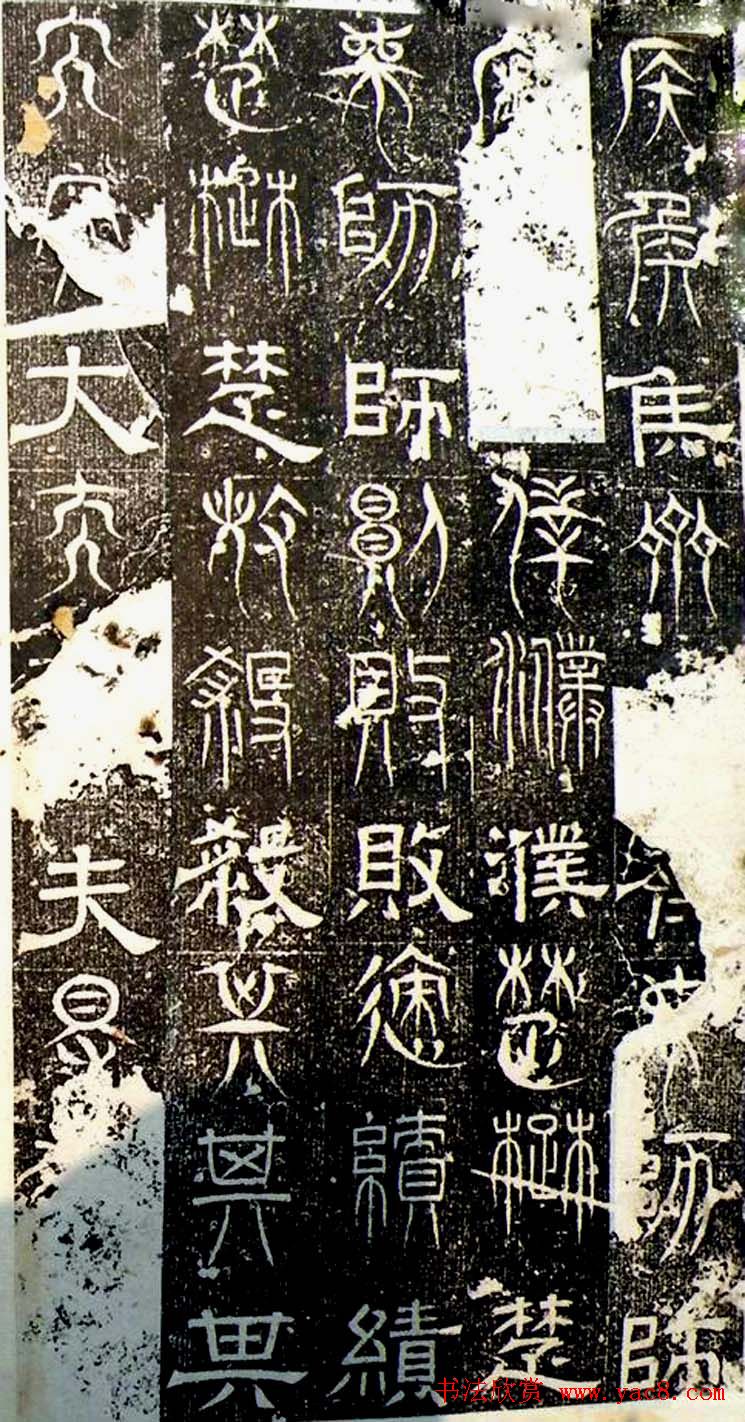 侯侯侯齊師師師
濮濮濮楚楚楚
師師師敗敗敗績績績
楚楚楚殺殺殺其其其
大大大夫夫得
书法欣赏 www.yac8.com